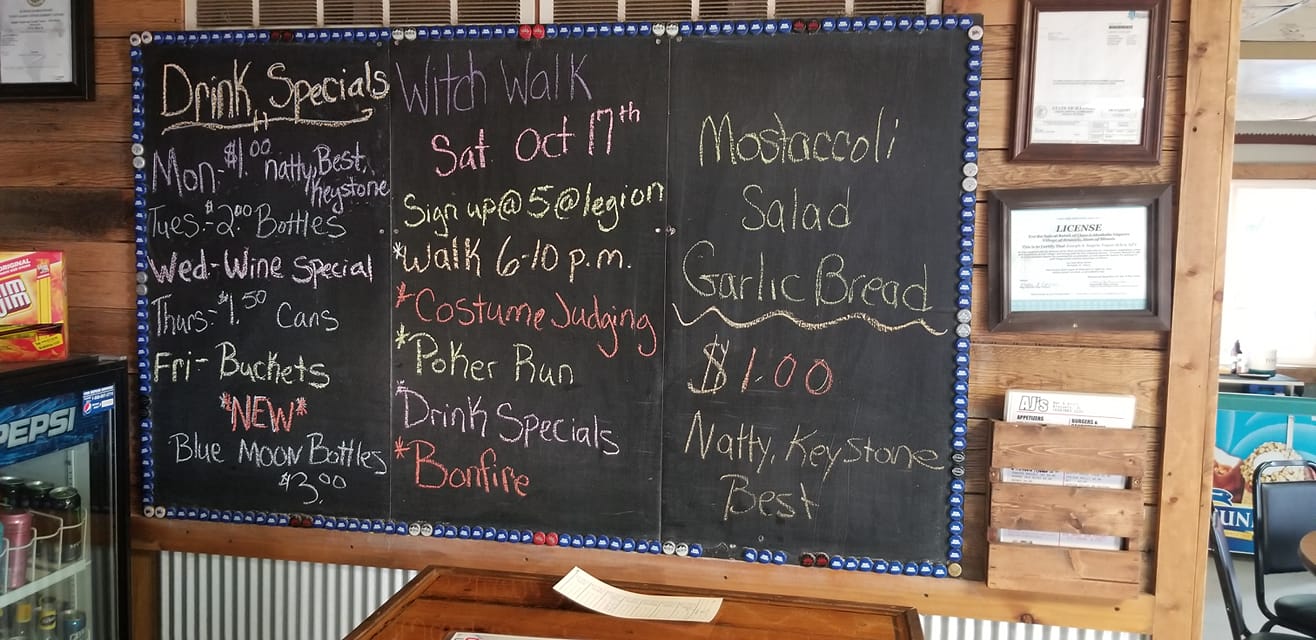 Drink Specials
Mon-$1.00 natty, Best,
Keystone
Tues-$2.00 Bottles
Wed-Wine Special
Thurs-$1.50 Cans
Fri-Buckets
*NEW*
Blue Moon Bottles
$3.00
Witch Walk
Sat Oct 17th
Sign up@5@legion
*Walk 6-10 p.m.
*Costume Judging
*Poker Run
*Drink Specials
*Bonfire
Mostaccoli
Salad
Garlic Bread
$1.00
Natty, Keystone
Best
ORIGINAL
PEPSI
LICENSE
AJ's
APPETIZERS
BURGERS &